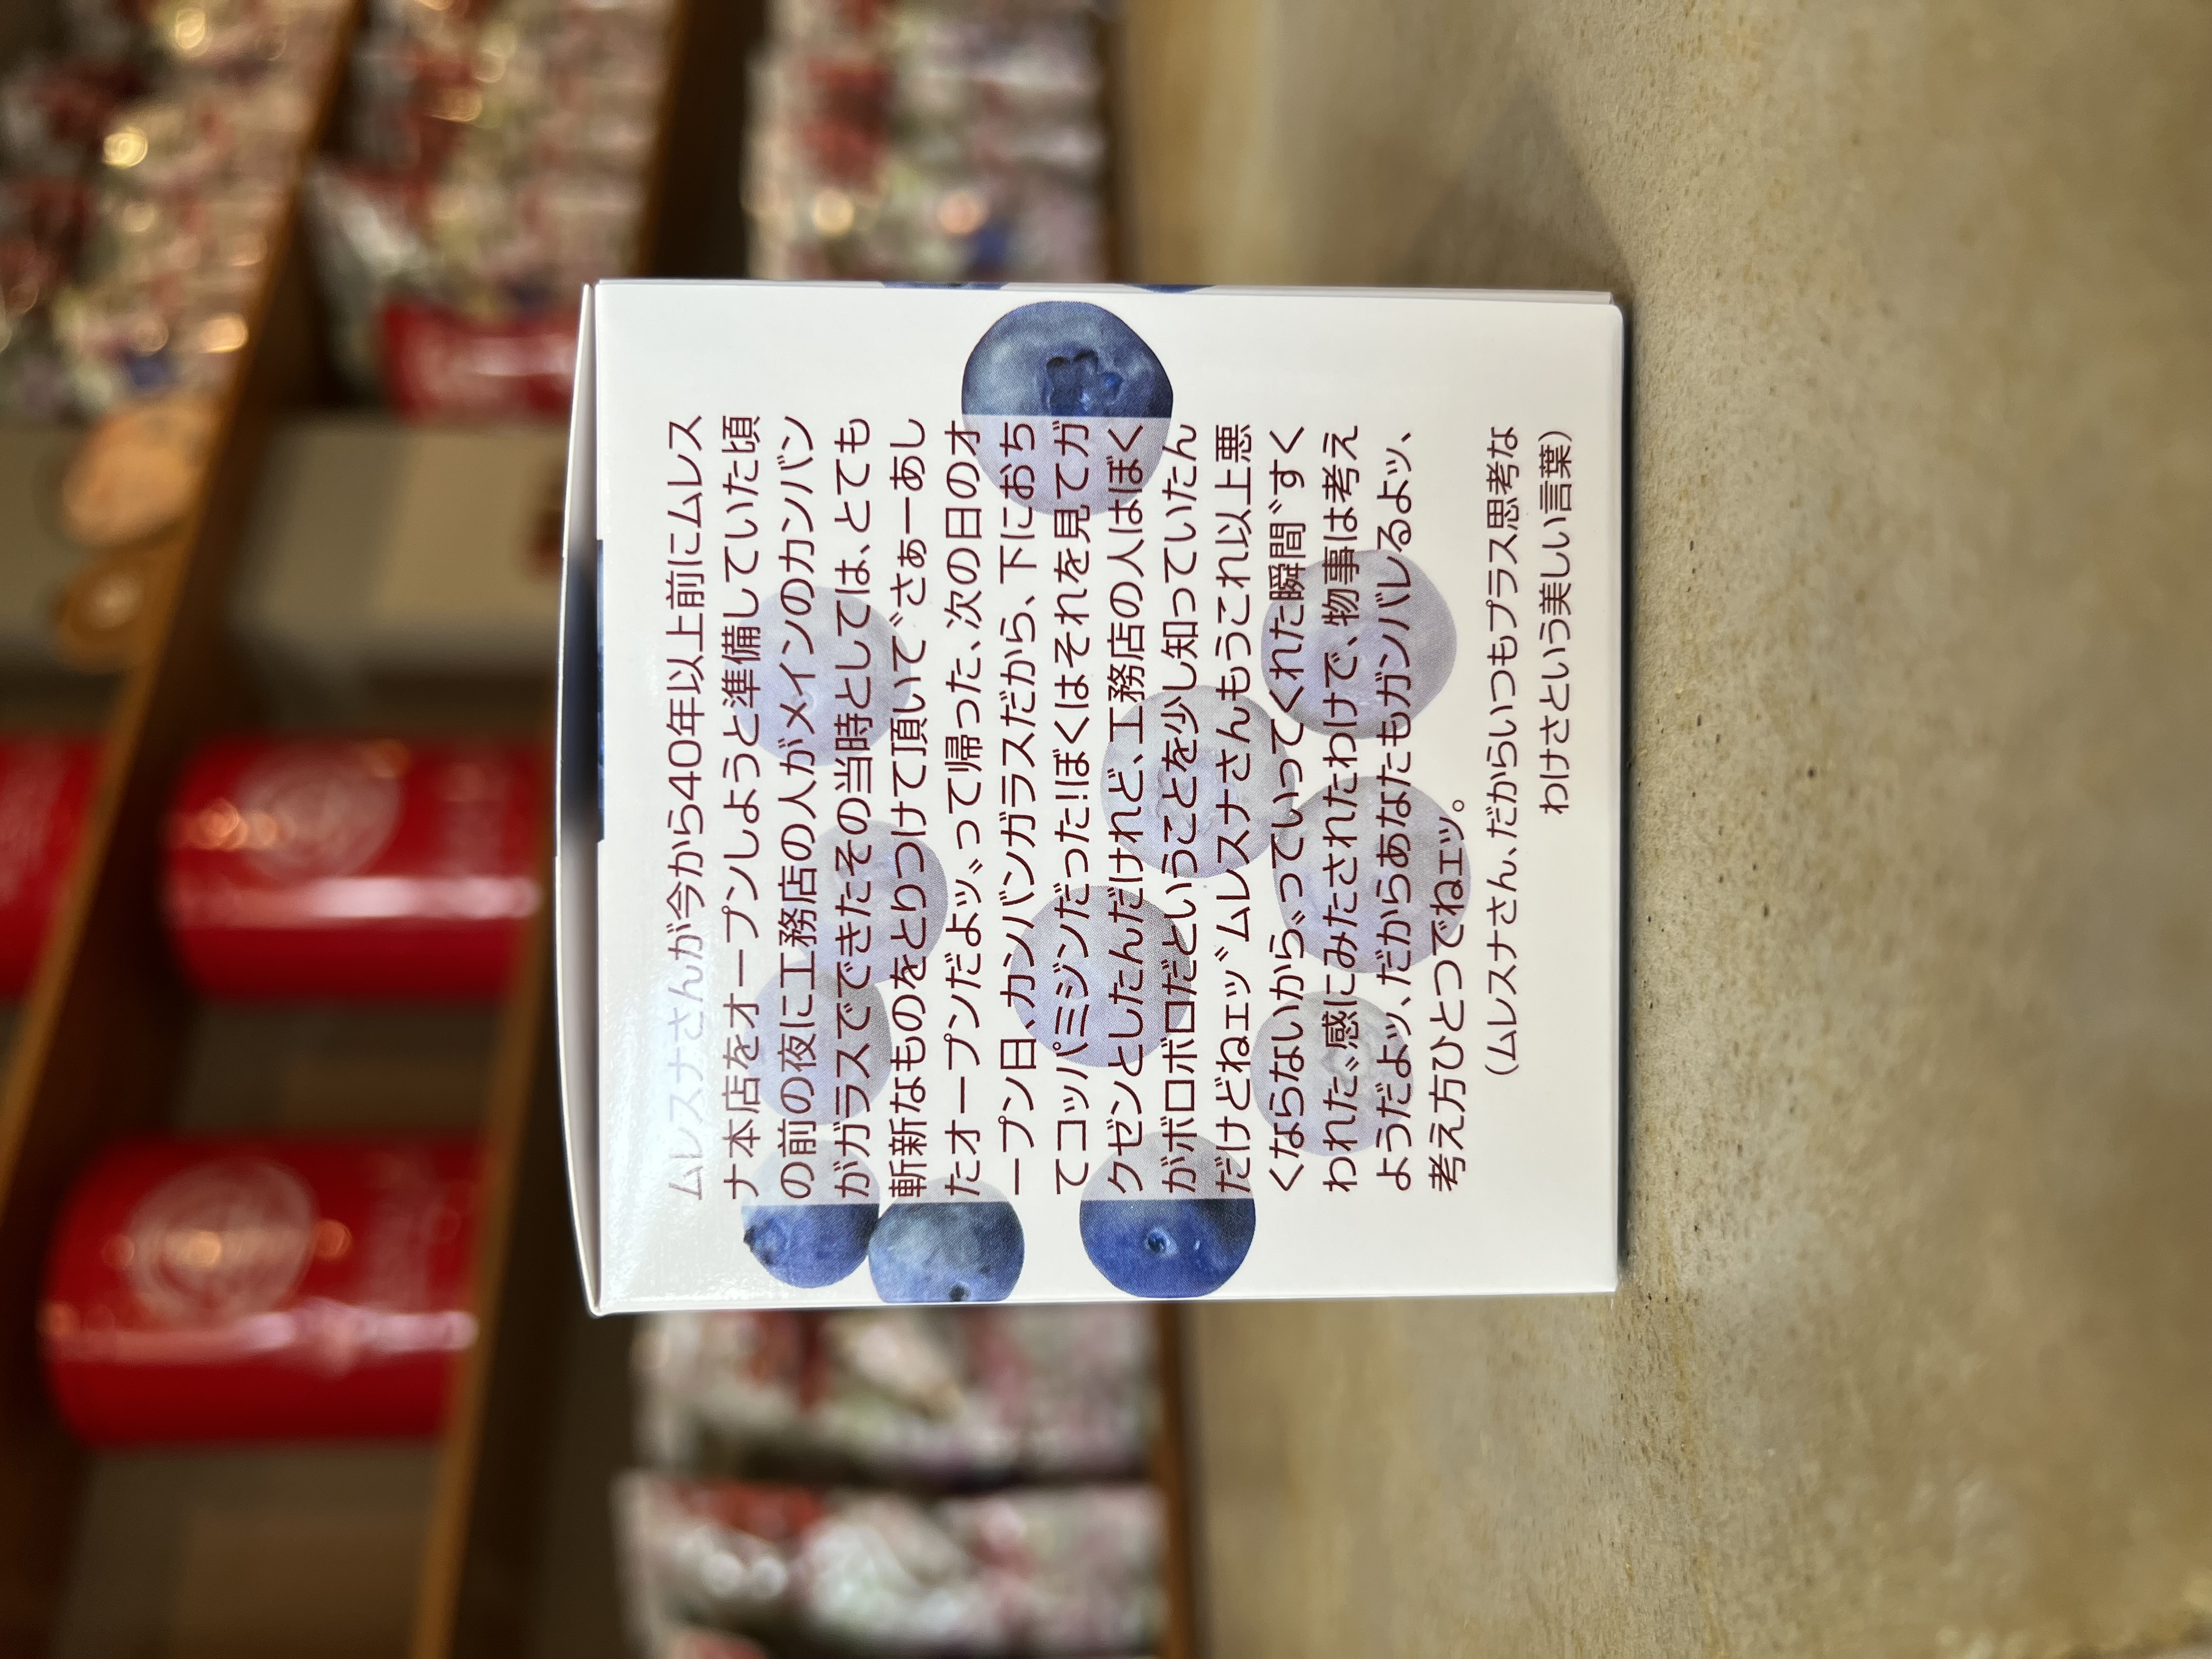 ムレスナさんが今から40年以上前にムレス
ナ本店をオープンしようと準備していた頃
の前の夜に工務店の人がメインのカンバン
がガラスでできたその当時としては、とても
斬新なものをとりつけて頂いて〝さぁーあし
たオープンだよッ〟って帰った、次の日のオ
ープン日、カンバンガラスだから、下におち
てコッパミジンだった!ぼくはそれを見てガ
クゼンとしたんだけれど、工務店の人はぼく
がボロボロだということを少し知っていたん
だけどねェッ〝ムレスナさんもうこれ以上悪
くならないから〟っていってくれた瞬間〝すく
われた〟感にみたされたわけで、物事は考え
ようだよッ、だからあなたもガンバレるよッ、
考え方ひとつでねェッ。
(ムレスナさん、だからいつもプラス思考な
わけさという美しい言葉)